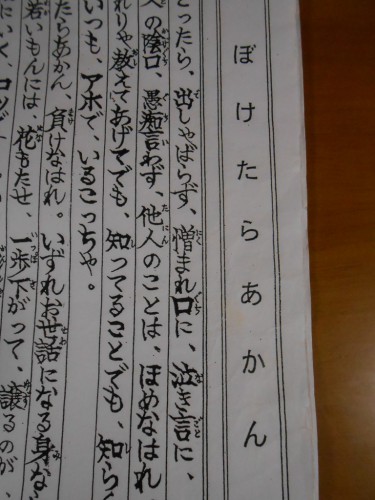 ぼけたらあかん
とったら、出しゃばらず、憎まれ口に、泣き言に、
の陰口、愚痴言わず、他人のことは、ほめなはれ
れりゃ教えてあげてでも、知ってることでも、知らん
いつも、アホで、いるこっちゃ。
たらあかん、負けなはれ。いずれお世話になる身な
若いもんには、花もたせ、一歩下がって、譲るのが
にいく、コツ